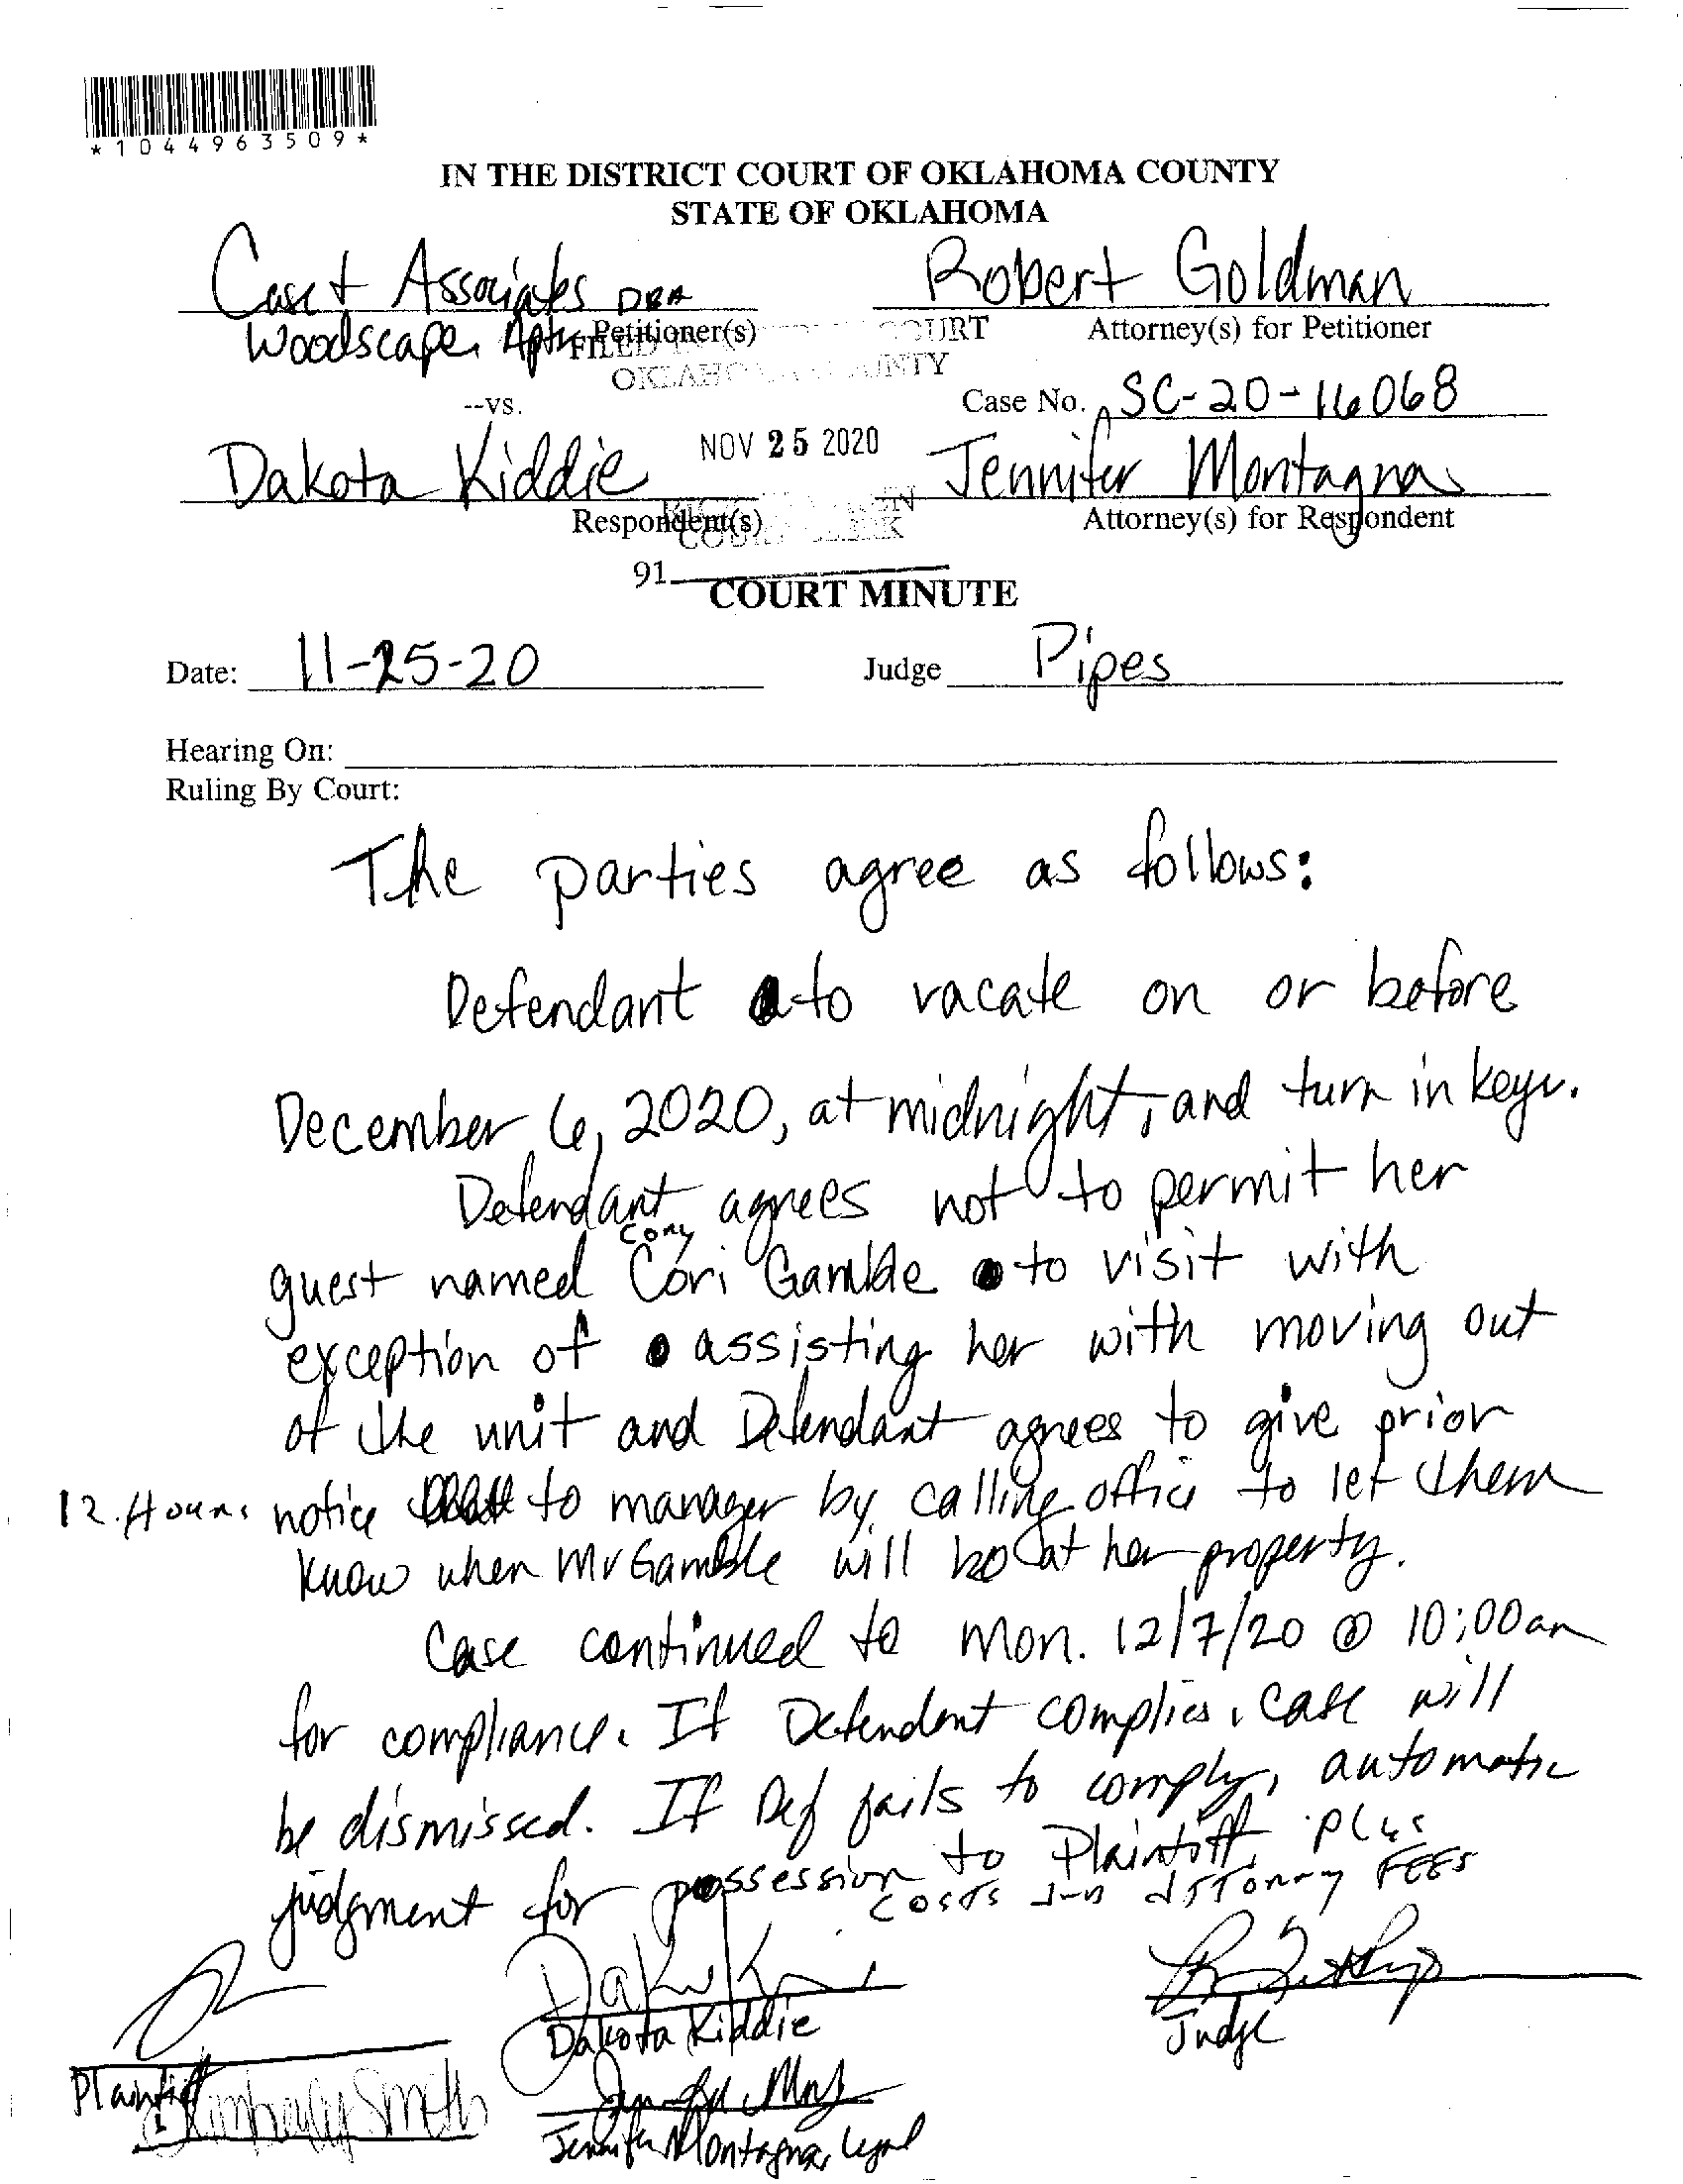 *1044963509*
IN THE DISTRICT COURT OF OKLAHOMA COUNTY
STATE OF OKLAHOMA
Case & Associates DBA
Robert Goldman
Woodscape Apts
Petitioner(s)
Attorney(s) for Petitioner
FILED IN COURT
OKLAHOMA COUNTY
--vs.
Case No. SC-20-16068
NOV 25 2020
Dakota Kiddie
Jennifer Montagna
Respondent(s)
Attorney(s) for Respondent
COURT CLERK
91
COURT MINUTE
Date: 11-25-20
Judge Pipes
Hearing On:
Ruling By Court:
The parties agree as follows:
Defendant to vacate on or before
December 6, 2020, at midnight, and turn in keys.
Defendant agrees not to permit her
Cory
guest named Cori Gamble to visit with
exception of assisting her with moving out
of the unit and Defendant agrees to give prior
12. Hours notice to manager by calling office to let them
know when Mr Gamble will be at her property.
Case continued to Mon. 12/7/20 @ 10:00am
for compliance. If Defendent complies, case will
be dismissed. If Def fails to comply, automatic
judgment for possession to Plaintiff, plus
costs and attorny FEES
Dakota Kiddie
Judge
Plaintiff
Kimberly Smith
Jennifer Montagna, Legal